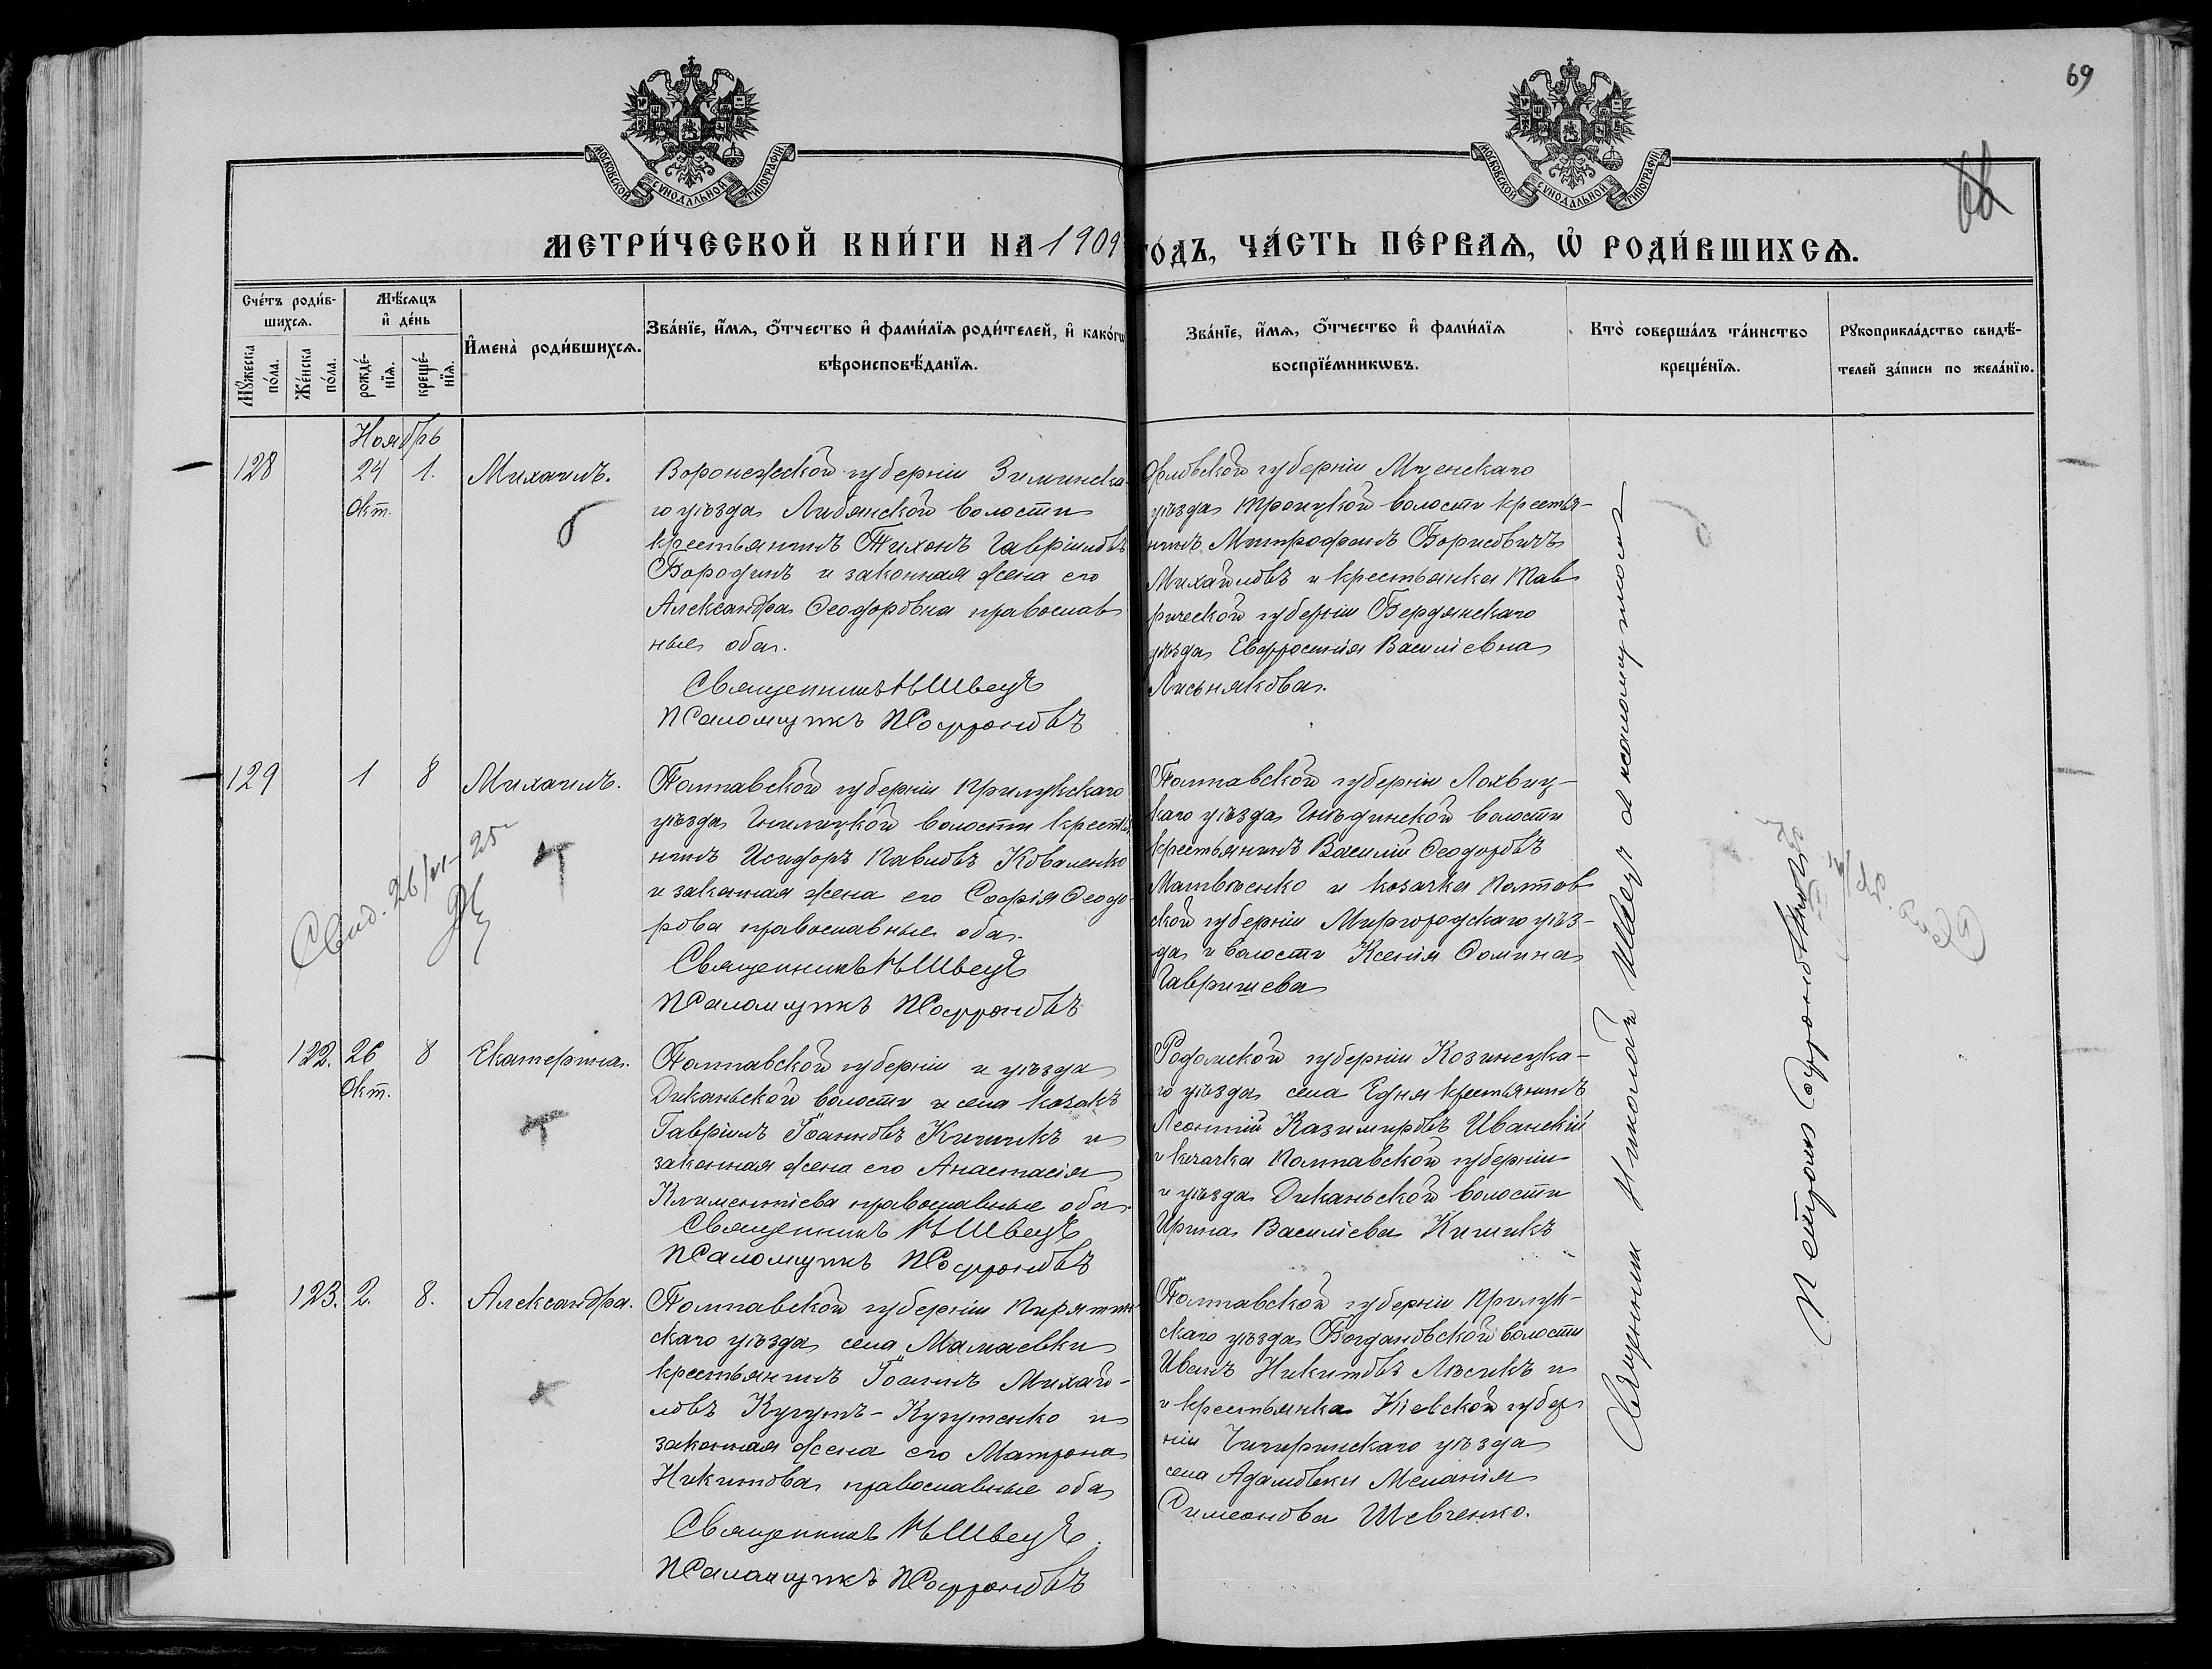 69
МОСКОВСКОЙ СѴНОДАЛЬНОЙ ТИПОГРАФІИ
МОСКОВСКОЙ СѴНОДАЛЬНОЙ ТИПОГРАФІИ
МЕТРИ́ЧЕСКОЙ КНИ́ГИ НА 1909 ГО́ДЪ, ЧА́СТЬ ПЕ́РВАѦ, Ѽ РОДИ́ВШИХСѦ.
Сче́тъ роди́в-
шихсѧ.
Мꙋ́жеска
по́ла.
Же́нска
по́ла.
Мѣ́сѧцъ
и҆ де́нь
рожде́-
нїѧ.
креще́-
нїѧ.
И҆мена̀ роди́вшихсѧ.
Зва́нїе, и҆́мѧ, ѻ҆́тчество и҆ фами́лїѧ роди́телей, и҆ како́гѡ
вѣроисповѣ́данїѧ.
Зва́нїе, и҆́мѧ, ѻ҆́тчество и҆ фами́лїѧ
воспрїе́мникѡвъ.
Кто̀ соверша́лъ та́инство
креще́нїѧ.
Рꙋкоприкла́дство свидѣ́-
телей за́писи по жела́нїю.
Ноябрь
128 24 1. Михаилъ.
Окт.
Воронежской губерніи Зиминска-
го уѣзда Либянской волости
крестьянинъ Тихонъ Гавріиловъ
Бородинъ и законная жена его
Александра Ѳеодоровна православ
ные оба.
Священникъ Н Швецъ
Псаломщикъ П Софроновъ
Орловской губерніи Мценскаго
уѣзда Троицкой волости крестья-
нинъ Митрофанъ Борисовичъ
Михайловъ и крестьянка Тав
рической губерніи Бердянскаго
уѣзда Евфросинія Василіевна
Лисьнякова.
129 1 8 Михаилъ.
Свид. 26/VI-25
Полтавской губерніи Прилукскаго
уѣзда Гнилицкой волости крестья
нинъ Исидоръ Павловъ Коваленко
и законная жена его Софія Ѳеодо-
рова православные оба.
Священникъ Н Швецъ
Псаломщикъ П Софроновъ
Полтавской губерніи Лохвиц-
каго уѣзда Гнѣдинской волости
крестьянинъ Василій Ѳеодоровъ
Матвѣенко и козачка Полтав
ской губерніи Миргородскаго уѣз-
да и волости Ксенія Ѳомина
Гавришева
122. 26 8 Екатерина.
Окт.
Полтавской губерніи и уѣзда
Диканьской волости и села козакъ
Гавріилъ Іоанновъ Кишикъ и
законная жена его Анастасія
Климентіева православные оба.
Священникъ Н Швецъ
Псаломщикъ П Софроновъ
Родомской губерніи Козинецка-
го уѣзда села Едня крестьянинъ
Леонтій Казимировъ Иванскій
и козачка Полтавской губерніи
и уѣзда Диканьской волости
Ирина Василіева Кишикъ
123. 2. 8. Александра.
Полтавской губерніи Пирятин
скаго уѣзда села Мамаевки
крестьянинъ Іоаннъ Михай-
ловъ Кугутъ-Кугутенко и
законная жена его Матрона
Никитова православные оба
Священникъ Н Швецъ.
Псаломщикъ П Софроновъ
Полтавской губерніи Прилук-
скаго уѣзда Богдановской волости
Иванъ Никитовъ Лѣсикъ и
и крестьянка Кіевской губер
ніи Чигиринскаго уѣзда
села Адамовки Меланія
Симеонова Шевченко.
Священникъ Николай Швецъ с псаломщикомъ
Петромъ Софроновымъ